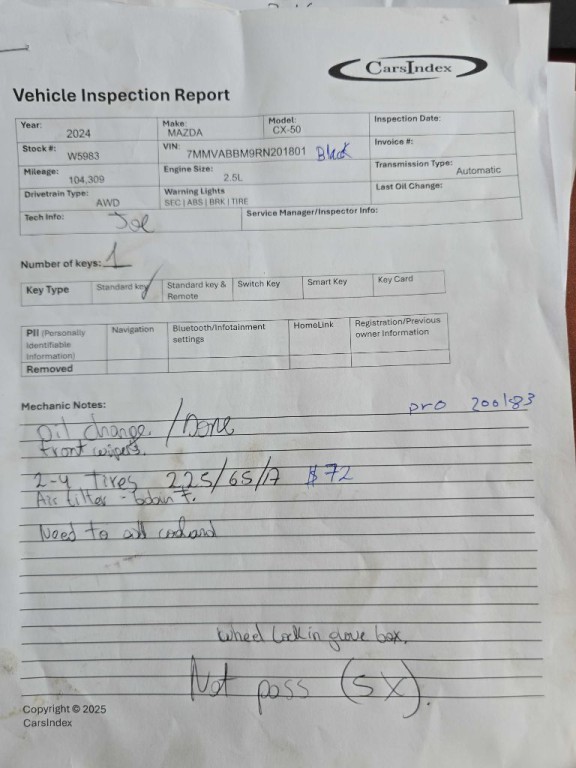 CarsIndex
Vehicle Inspection Report
Year: 2024
Make: MAZDA
Model: CX-50
Inspection Date:
Stock #: W5983
VIN: 7MMVABBM9RN201801 Black
Invoice #:
Mileage: 104,309
Engine Size: 2.5L
Transmission Type: Automatic
Drivetrain Type: AWD
Warning Lights
SEC | ABS | BRK | TIRE
Last Oil Change:
Tech Info: Joe
Service Manager/Inspector Info:
Number of keys: 1
Key Type
Standard key
Standard key & Remote
Switch Key
Smart Key
Key Card
PII (Personally Identifiable Information)
Navigation
Bluetooth/Infotainment settings
HomeLink
Registration/Previous owner Information
Removed
Mechanic Notes:
pro 200183
oil change. / Done
Front wipers.
2-4 Tires 225/65/17 $72
Air filter -
Need to add
Wheel Lock in glove box.
Not pass (5X).
Copyright © 2025
CarsIndex